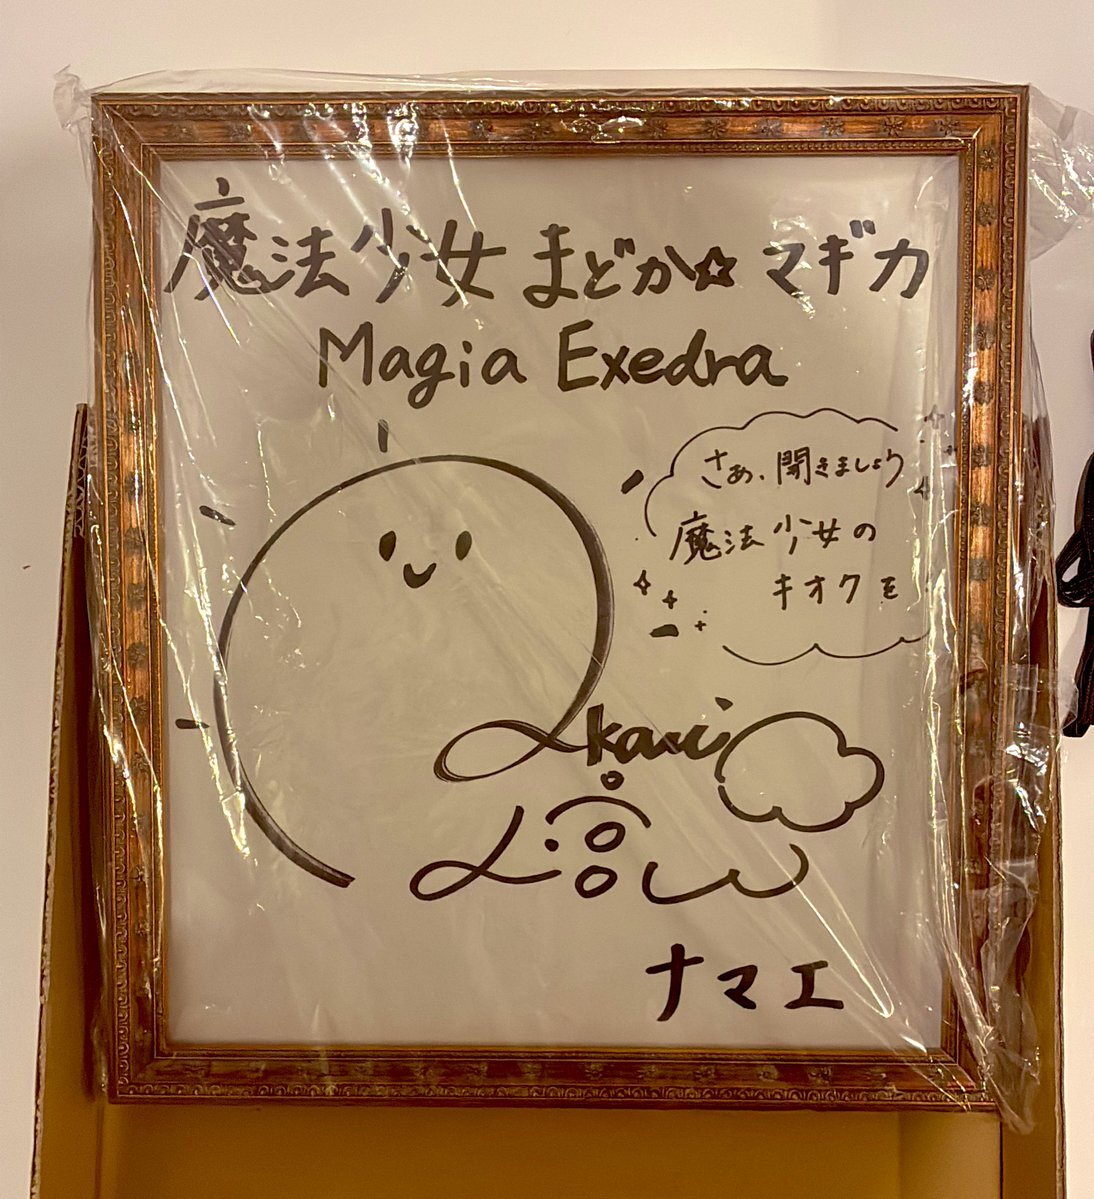 魔法少女まどか☆マギカ
Magia Exedra
さあ、開きましょう
魔法少女の
キオクを
ナマエ